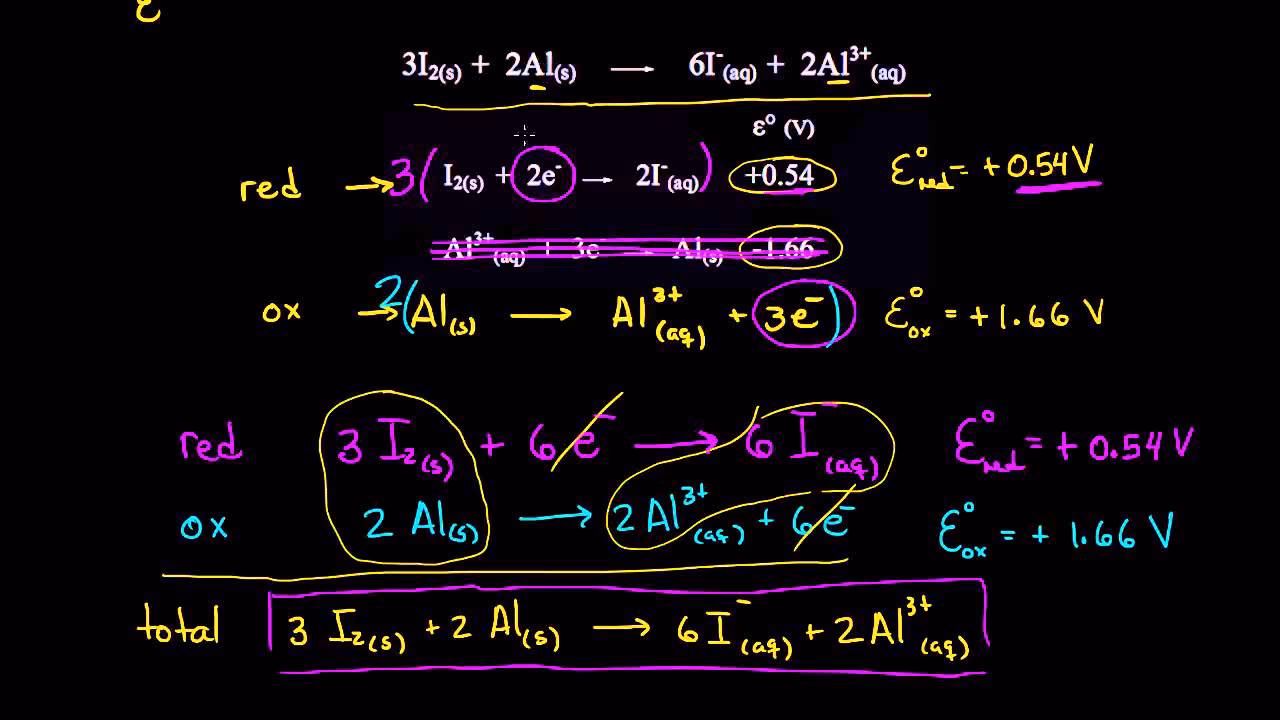 ε
3I₂(s) + 2Al(s) → 6I⁻(aq) + 2Al³⁺(aq)
ε° (V)
red → 3( I₂(s) + 2e⁻ → 2I⁻(aq) ) +0.54 ε°red = +0.54 V
Al³⁺(aq) + 3e⁻ → Al(s) -1.66
ox → 2( Al(s) → Al³⁺(aq) + 3e⁻ ) ε°ox = +1.66 V
red 3 I₂(s) + 6e⁻ → 6 I⁻(aq) ε°red = +0.54 V
ox 2 Al(s) → 2Al³⁺(aq) + 6e⁻ ε°ox = +1.66 V
total 3 I₂(s) + 2 Al(s) → 6I⁻(aq) + 2Al³⁺(aq)